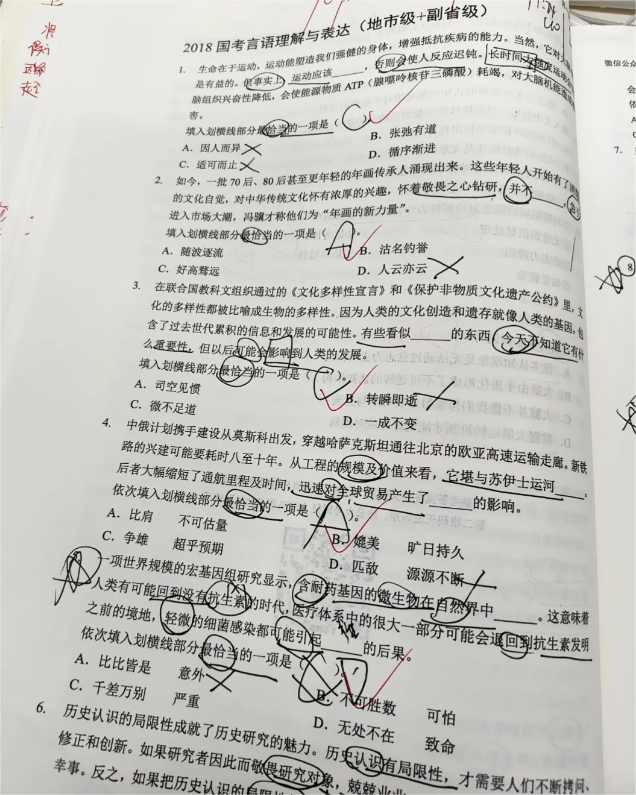 2018 国考言语理解与表达（地市级+副省级）
1. 生命在于运动，运动能塑造我们强健的身体，增强抵抗疾病的能力。当然，它对大
是有益的。但事实上，运动应该______，否则会使人反应迟钝。长时间大强度运动
脑组织兴奋性降低，会使能源物质 ATP（腺嘌呤核苷三磷酸）耗竭，对大脑机能
害。
填入划横线部分最恰当的一项是（C）。
A．因人而异
B．张弛有道
C．适可而止
D．循序渐进
2. 如今，一批 70 后、80 后甚至更年轻的年画传承人涌现出来。这些年轻人开始有了
的文化自觉，对中华传统文化怀有浓厚的兴趣，怀着敬畏之心钻研，并不______，
进入市场大潮，冯骥才称他们为“年画的新力量”。
填入划横线部分最恰当的一项是（A）。
A．随波逐流
B．沽名钓誉
C．好高骛远
D．人云亦云
3. 在联合国教科文组织通过的《文化多样性宣言》和《保护非物质文化遗产公约》里，文
化的多样性都被比喻成生物的多样性。因为人类的文化创造和遗存就像人类的基因，包
含了过去世代累积的信息和发展的可能性。有些看似______的东西，今天不知道它有什
么重要性，但以后可能会影响到人类的发展。
填入划横线部分最恰当的一项是（ ）。
A．司空见惯
B．转瞬即逝
C．微不足道
D．一成不变
4. 中俄计划携手建设从莫斯科出发，穿越哈萨克斯坦通往北京的欧亚高速运输走廊。新铁
路的兴建可能要耗时八至十年。从工程的规模及价值来看，它堪与苏伊士运河______，
后者大幅缩短了通航里程及时间，迅速对全球贸易产生了______的影响。
依次填入划横线部分最恰当的一项是（A）。
A．比肩 不可估量
B．媲美 旷日持久
C．争雄 超乎预期
D．匹敌 源源不断
一项世界规模的宏基因组研究显示，含耐药基因的微生物在自然界中______。这意味着
人类有可能回到没有抗生素的时代，医疗体系中的很大一部分可能会退回到抗生素发明
之前的境地，轻微的细菌感染都可能引起______的后果。
依次填入划横线部分最恰当的一项是（D）。
A．比比皆是 意外
B．不可胜数 可怕
C．千差万别 严重
D．无处不在 致命
6. 历史认识的局限性成就了历史研究的魅力。历史认识有局限性，才需要人们不断拷问、
修正和创新。如果研究者因此而敬畏研究对象，兢兢业业
幸事。反之，如果把历史认识的局限性
微信公众
7.
8